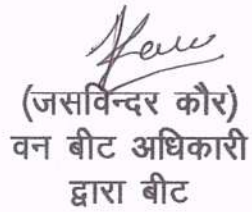 (जसविन्दर कौर)
वन बीट अधिकारी
द्वारा बीट